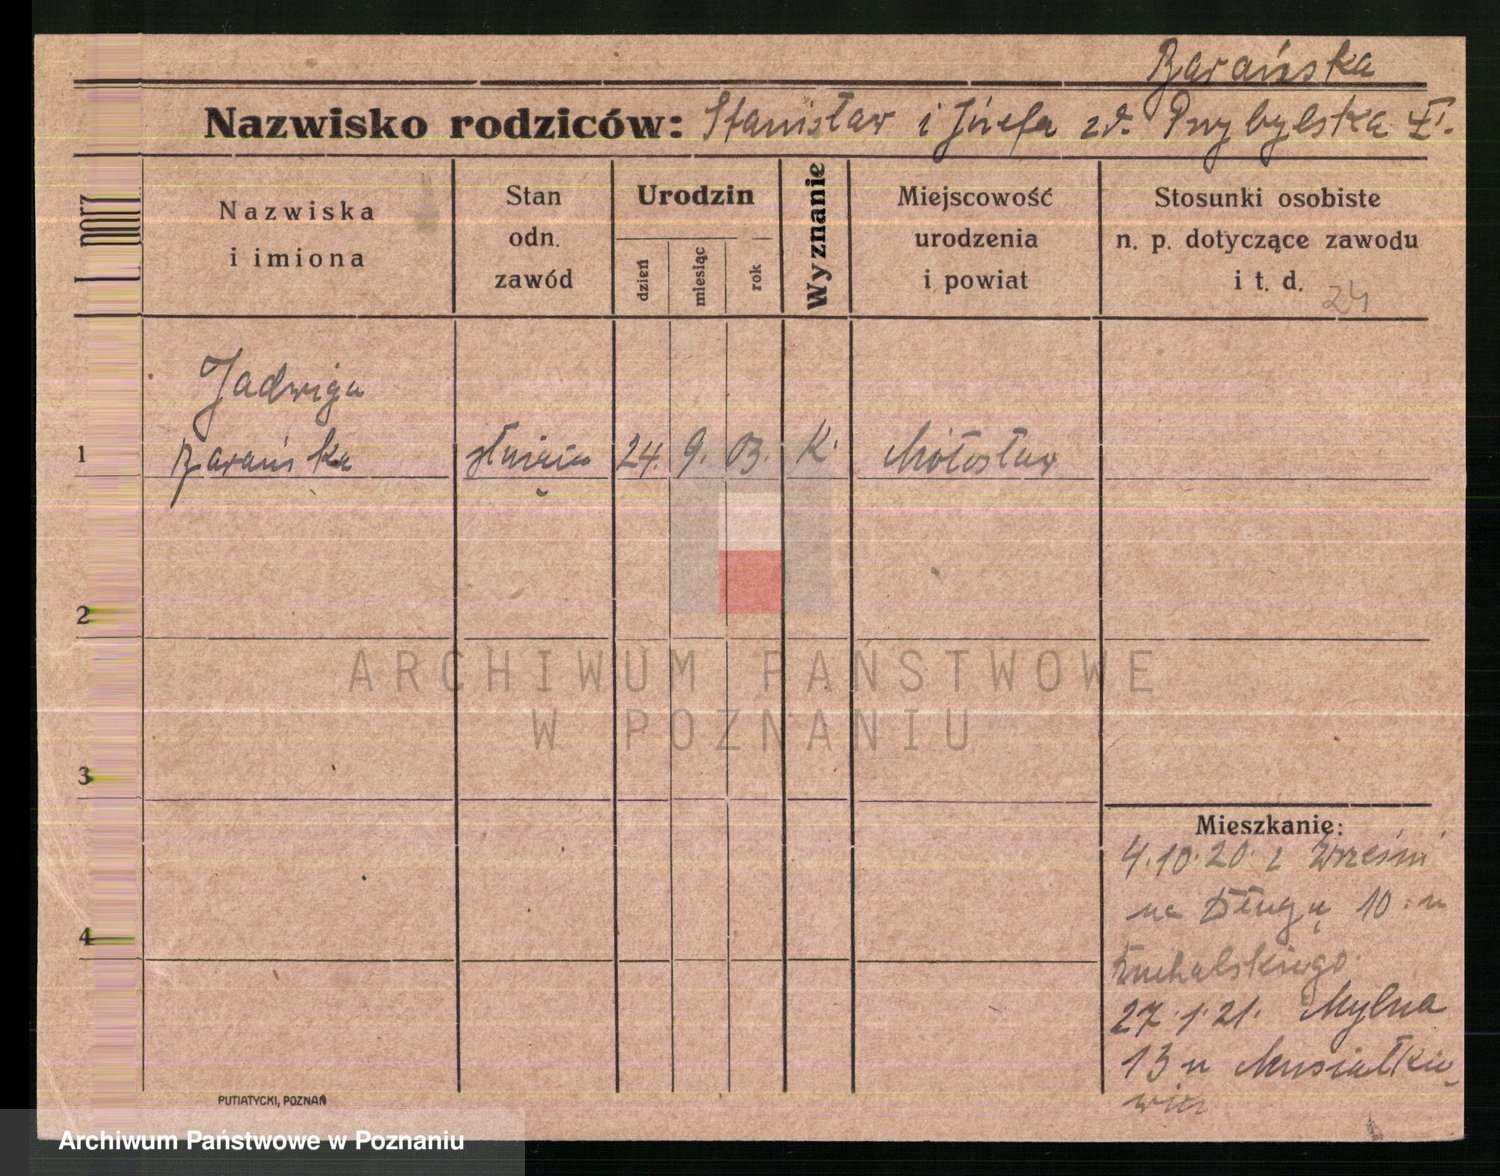 Barańska
Nazwisko rodziców: Stanisław i Józefa zd. Przybylska
Nazwiska
i imiona
Stan
odn.
zawód
Urodzin
dzień
miesiąc
rok
Wyznanie
Miejscowość
urodzenia
i powiat
Stosunki osobiste
n. p. dotyczące zawodu
i t. d.
24
Jadwiga
1 Barańska służąca 24. 9. 03. K. Miłosław
2
3
4
ARCHIWUM PAŃSTWOWE
W POZNANIU
Mieszkanie:
4.10.20 z Wrześni
na Długą 10 u
27.1.21. Mylna
13 u
PUTIATYCKI, POZNAŃ
Archiwum Państwowe w Poznaniu